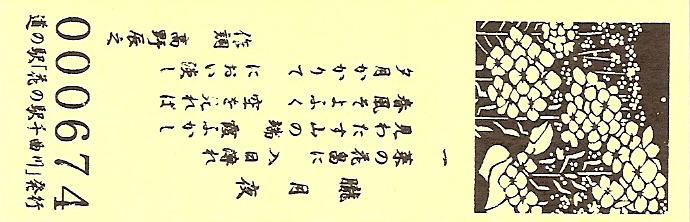 朧月夜
一
菜の花畠に 入日薄れ
見わたす山の端 霞ふかし
春風そよふく 空を見れば
夕月かかりて におい淡し
作詞 高野辰之
000674
道の駅「花の駅千曲川」発行